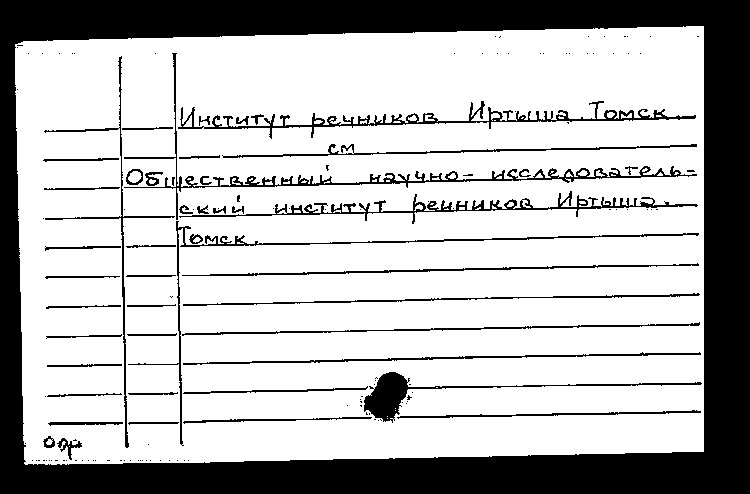 Институт речников Иртыша. Томск.
см
Общественный научно-исследователь-
ский институт речников Иртыша.
Томск.